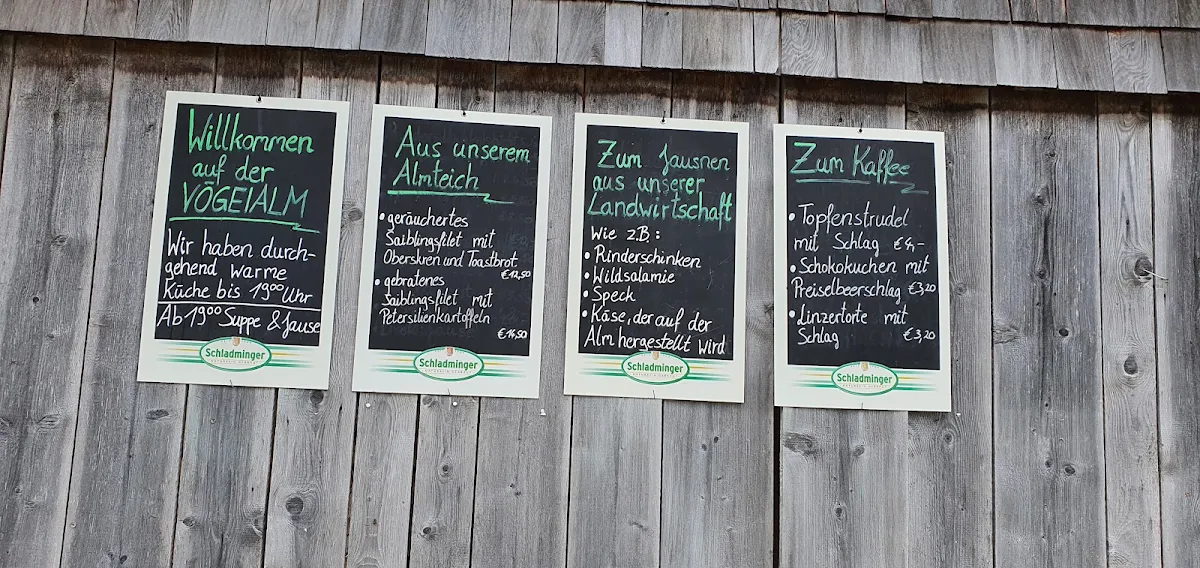 Willkommen
auf der
VÖGEIALM
Wir haben durch-
gehend warme
Küche bis 19⁰⁰ Uhr
Ab 19⁰⁰ Suppe & Jause
Schladminger
Aus unserem
Almteich
• geräuchertes
Saiblingsfilet mit
Oberskren und Toastbrot
€ 12,50
• gebratenes
Saiblingsfilet mit
Petersilienkartoffeln
€ 14,50
Schladminger
Zum Jausnen
aus unserer
Landwirtschaft
Wie z.B:
• Rinderschinken
• Wildsalamie
• Speck
• Käse, der auf der
Alm hergestellt wird
Schladminger
Zum Kaffee
• Topfenstrudel
mit Schlag € 4,-
• Schokokuchen mit
Preiselbeerschlag € 3,20
• Linzertorte mit
Schlag € 3,20
Schladminger